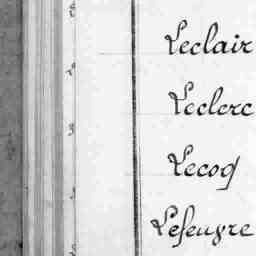 Leclair
Leclerc
Lecoq
Lefeuvre